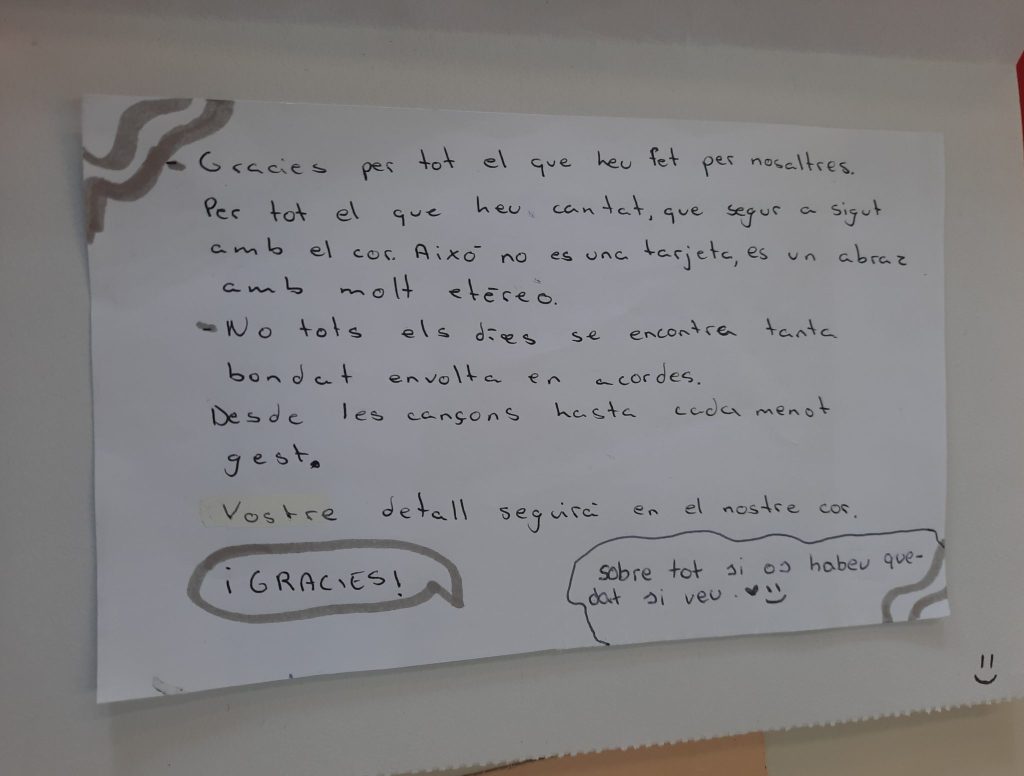 - Gracies per tot el que heu fet per nosaltres.
Per tot el que heu cantat, que segur a sigut
amb el cor. Aixó no es una tarjeta, es un abraz
amb molt etéreo.
- No tots els dies se encontra tanta
bondat envolta en acordes.
Desde les cançons hasta cada menot
gest.
Vostre detall seguirà en el nostre cor.
¡GRACIES!
sobre tot si os habeu que-
dat si veu. ♥ :)
:)